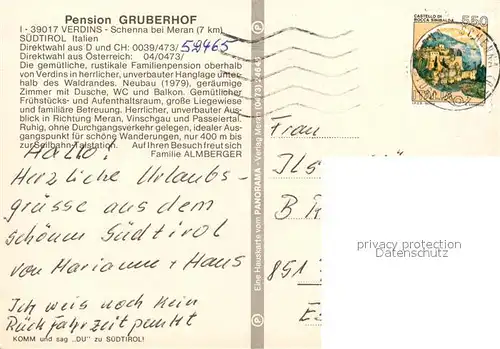 Pension GRUBERHOF
I - 39017 VERDINS - Schenna bei Meran (7 km)
SÜDTIROL Italien
Direktwahl aus D und CH: 0039/473/ 59465
Direktwahl aus Österreich: 04/0473/
Die gemütliche, rustikale Familienpension oberhalb
von Verdins in herrlicher, unverbauter Hanglage unter-
halb des Waldrandes. Neubau (1979), geräumige
Zimmer mit Dusche, WC und Balkon. Gemütlicher
Frühstücks- und Aufenthaltsraum, große Liegewiese
und familiäre Betreuung. Herrlicher, unverbauter Aus-
blick in Richtung Meran, Vinschgau und Passeiertal.
Ruhig, ohne Durchgangsverkehr gelegen, idealer Aus-
gangspunkt für schöne Wanderungen, nur 400 m bis
zur Seilbahn-Talstation. Auf Ihren Besuch freut sich
Familie ALMBERGER
Hallo!
Herzliche Urlaubs-
grüsse aus dem
schönen Südtirol
von Marianne + Hans
Ich weis noch kein
Rückfahrzeitpunkt
KOMM und sag „DU" zu SÜDTIROL!
Eine Hauskarte vom PANORAMA - Verlag Meran (0473)
CASTELLO DI
ROCCA SINIBALDA
550
Frau
Ils
B
851
privacy protection
Datenschutz